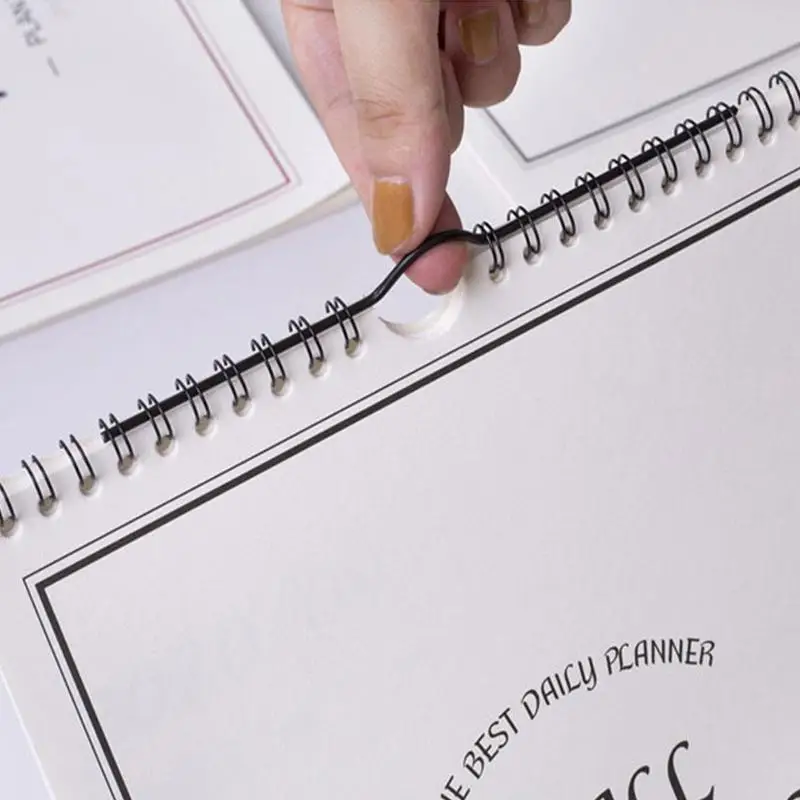 PLAN
HE BEST DAILY PLANNER
ALL